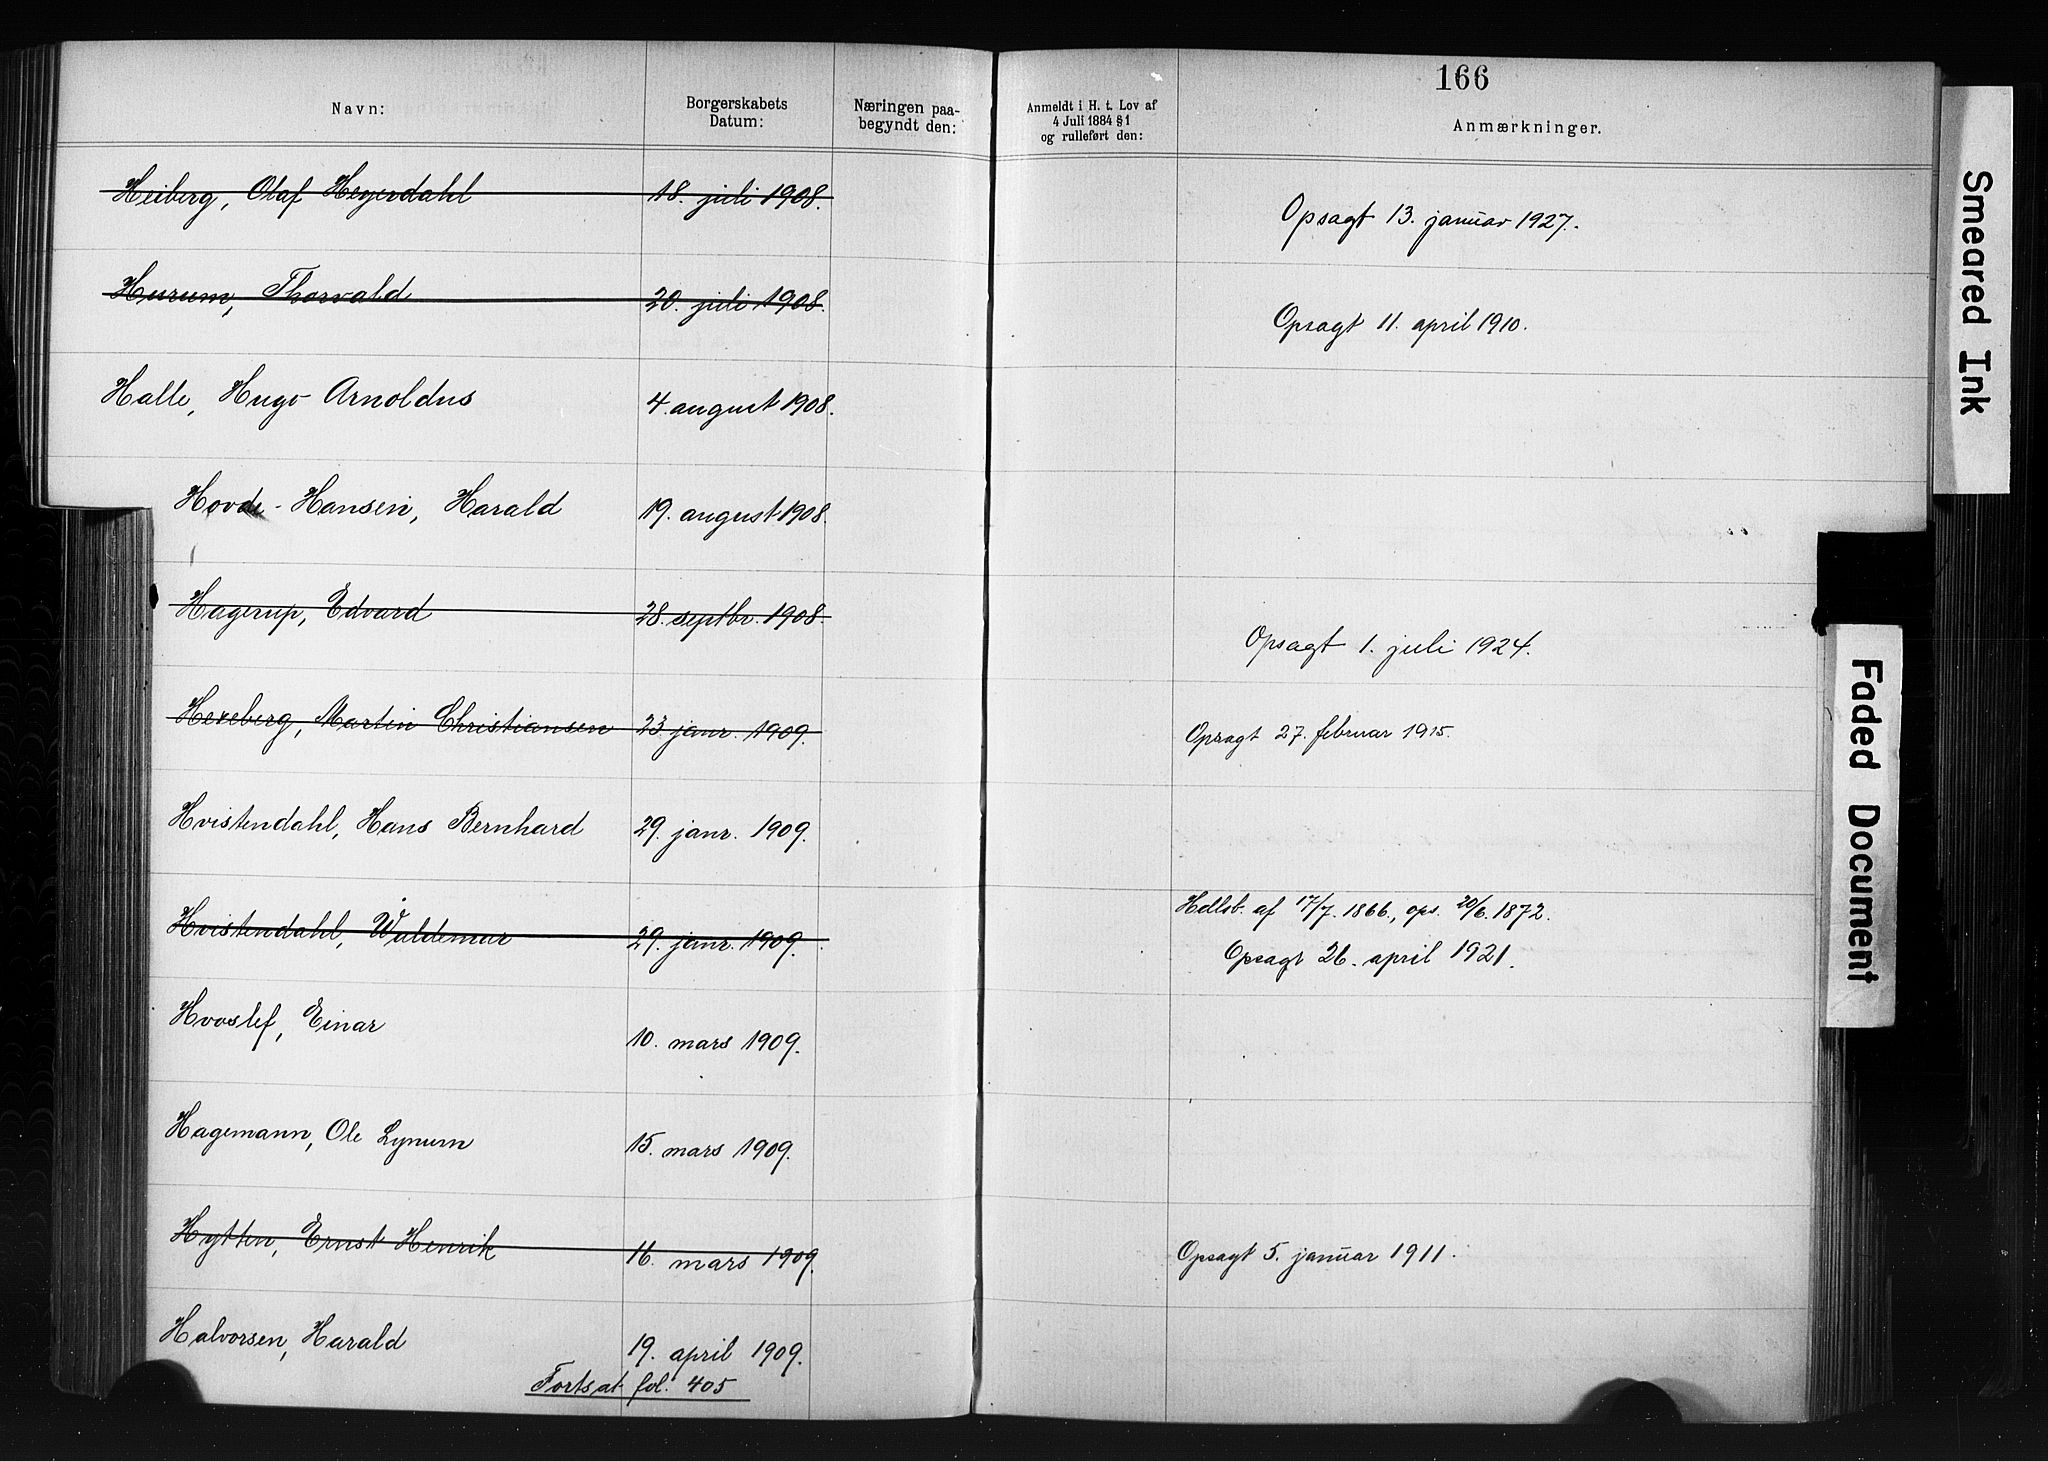 166
Navn: Borgerskabets Datum: Næringen paa-begyndt den: Anmeldt i H. t. Lov af 4 Juli 1884 § 1 og rulleført den: Anmærkninger.
Heiberg, Olaf Heyerdahl 18. juli 1908. Opsagt 13. januar 1927.
Hurum, Thorvald 20. juli 1908. Opsagt 11. april 1910.
Halle, Hugo Arnoldus 4. august 1908.
Hovde-Hansen, Harald 19. august 1908.
Hagerup, Edvard 28. septbr. 1908. Opsagt 1. juli 1924.
Hexeberg, Martin Christiansen 23. janr. 1909. Opsagt 27. februar 1915.
Hvistendahl, Hans Bernhard 29. janr. 1909.
Hvistendahl, Waldemar 29. janr. 1909. Hdlsb. af 17/7. 1866., ops. 20/6. 1872.
Opsagt 26. april 1921.
Hvoslef, Einar 10. mars 1909.
Hagemann, Ole Lynum 15. mars 1909.
Hytten, Ernst Henrik 16. mars 1909. Opsagt 5. januar 1911.
Halvorsen, Harald 19. april 1909.
Fortsat fol. 405
Smeared Ink
Faded Document